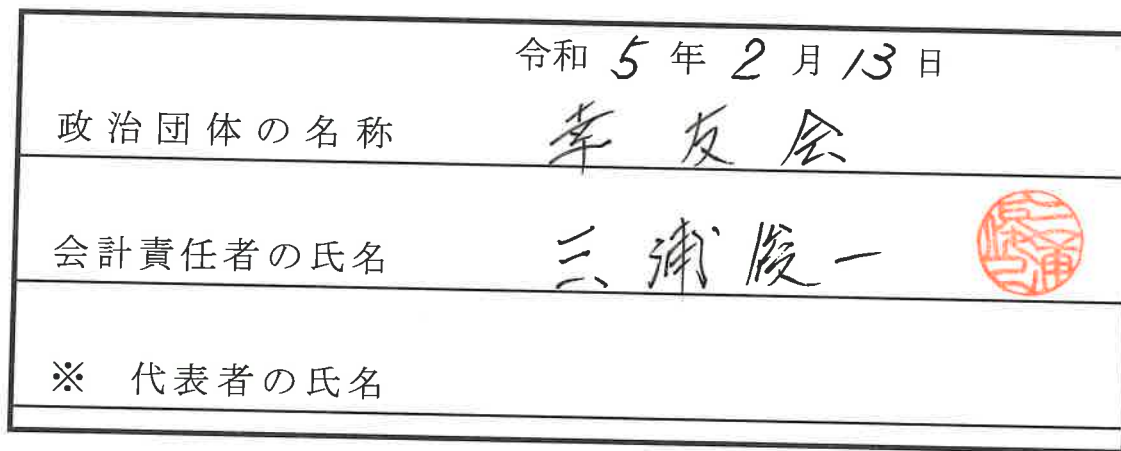 令和 5 年 2 月 13 日
政治団体の名称 幸友会
会計責任者の氏名 三浦俊一
※ 代表者の氏名